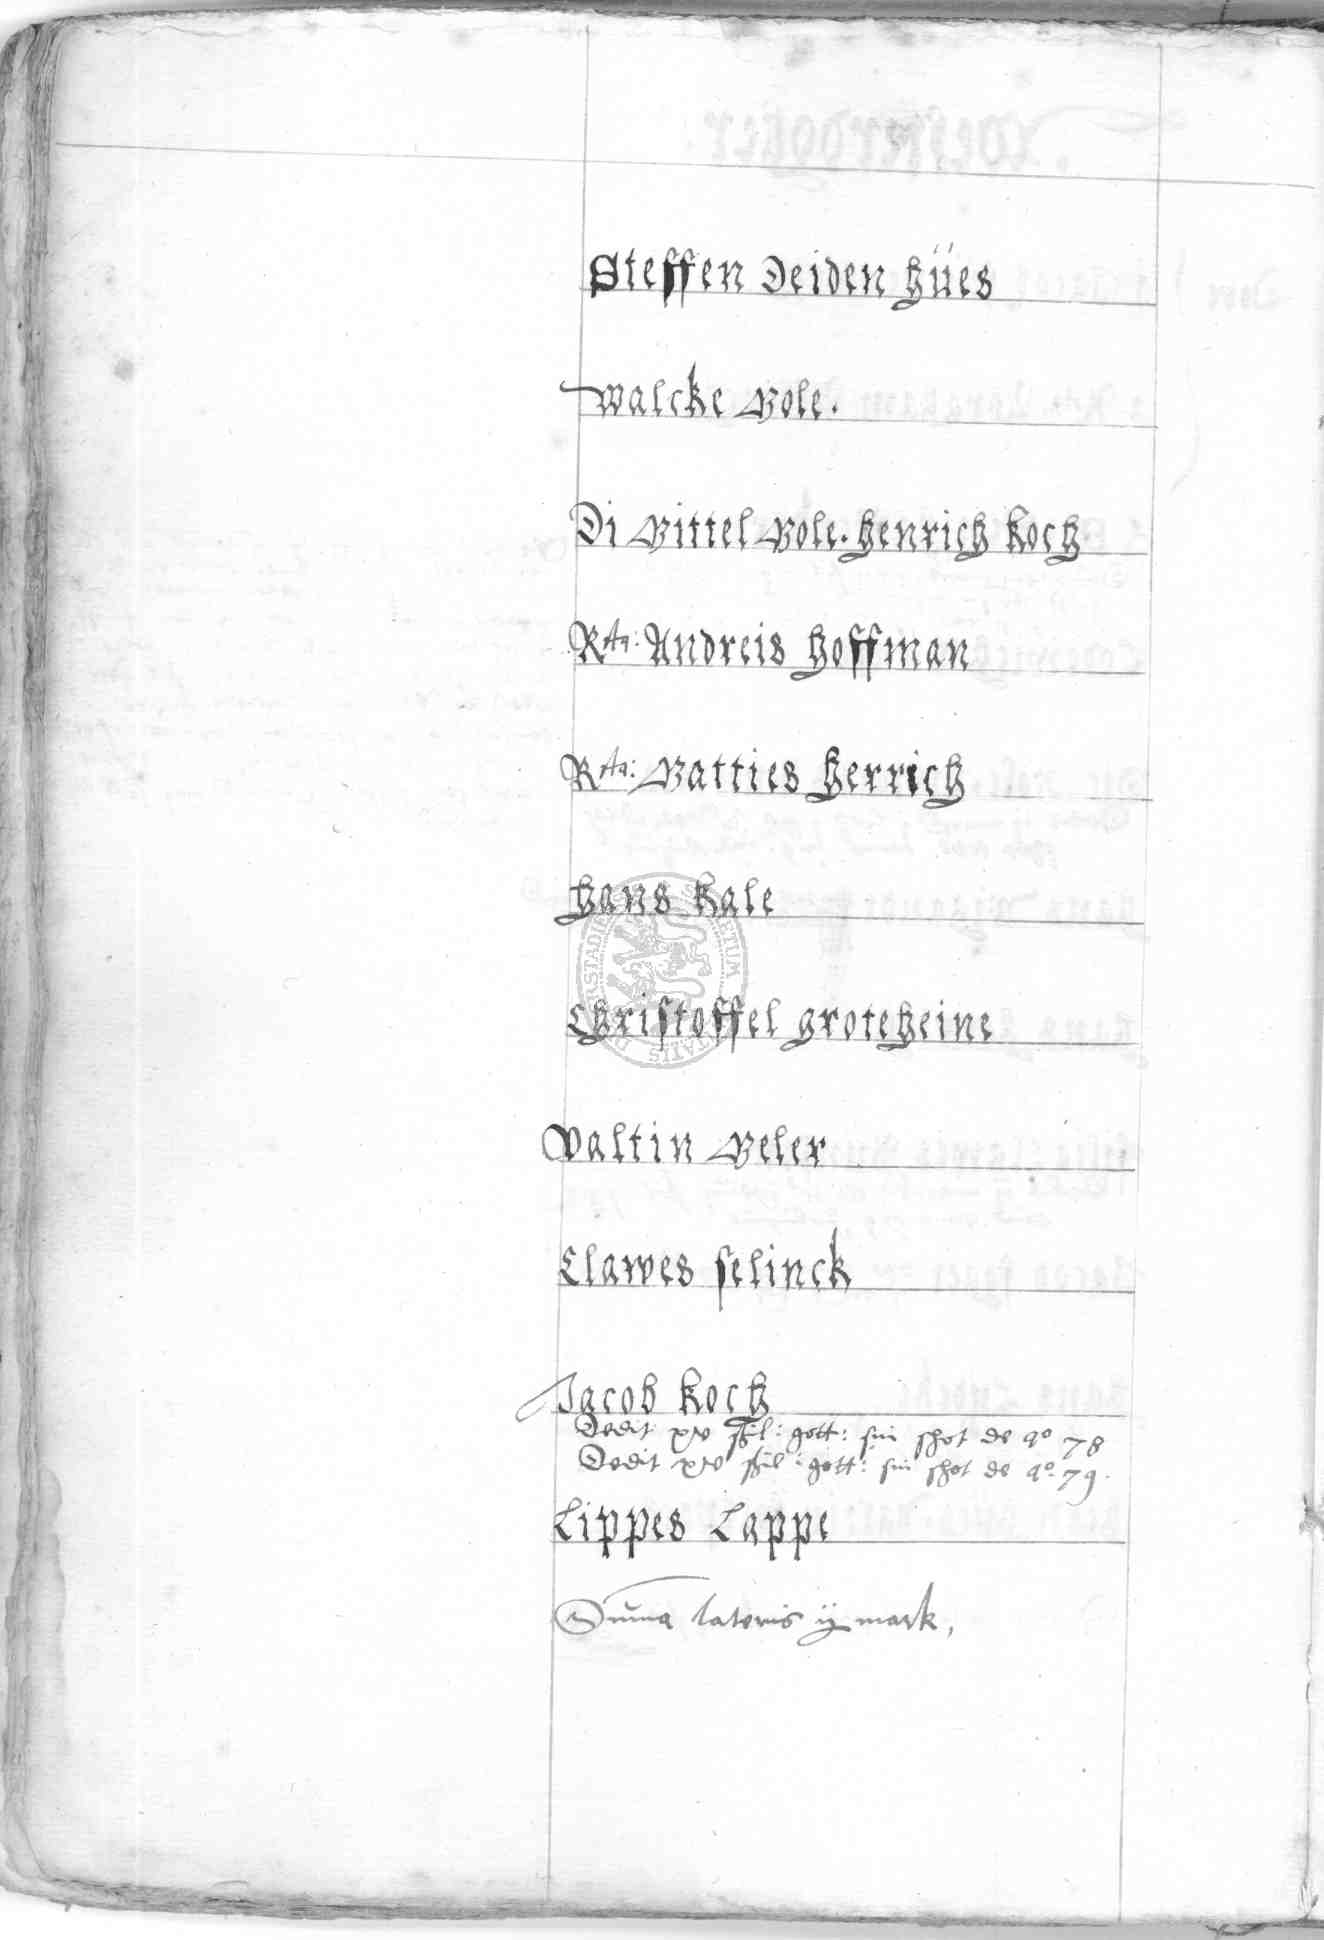 Steffen Deiden hües
Walcke Mole.
Di Mittel Mole. Henrich Koch
Rta: Andreis Hoffman
Rta: Matties Herrich
Hans Kale
Christoffel Groteheine
Valtin Meler
Clawes Selinck
Jacob Koch
Dedit xv ßil: gott: sin schot de ao 78
Dedit xv ßil: gott: sin schot de ao. 79.
Lippes Lappe
Suma lateris ij mark,